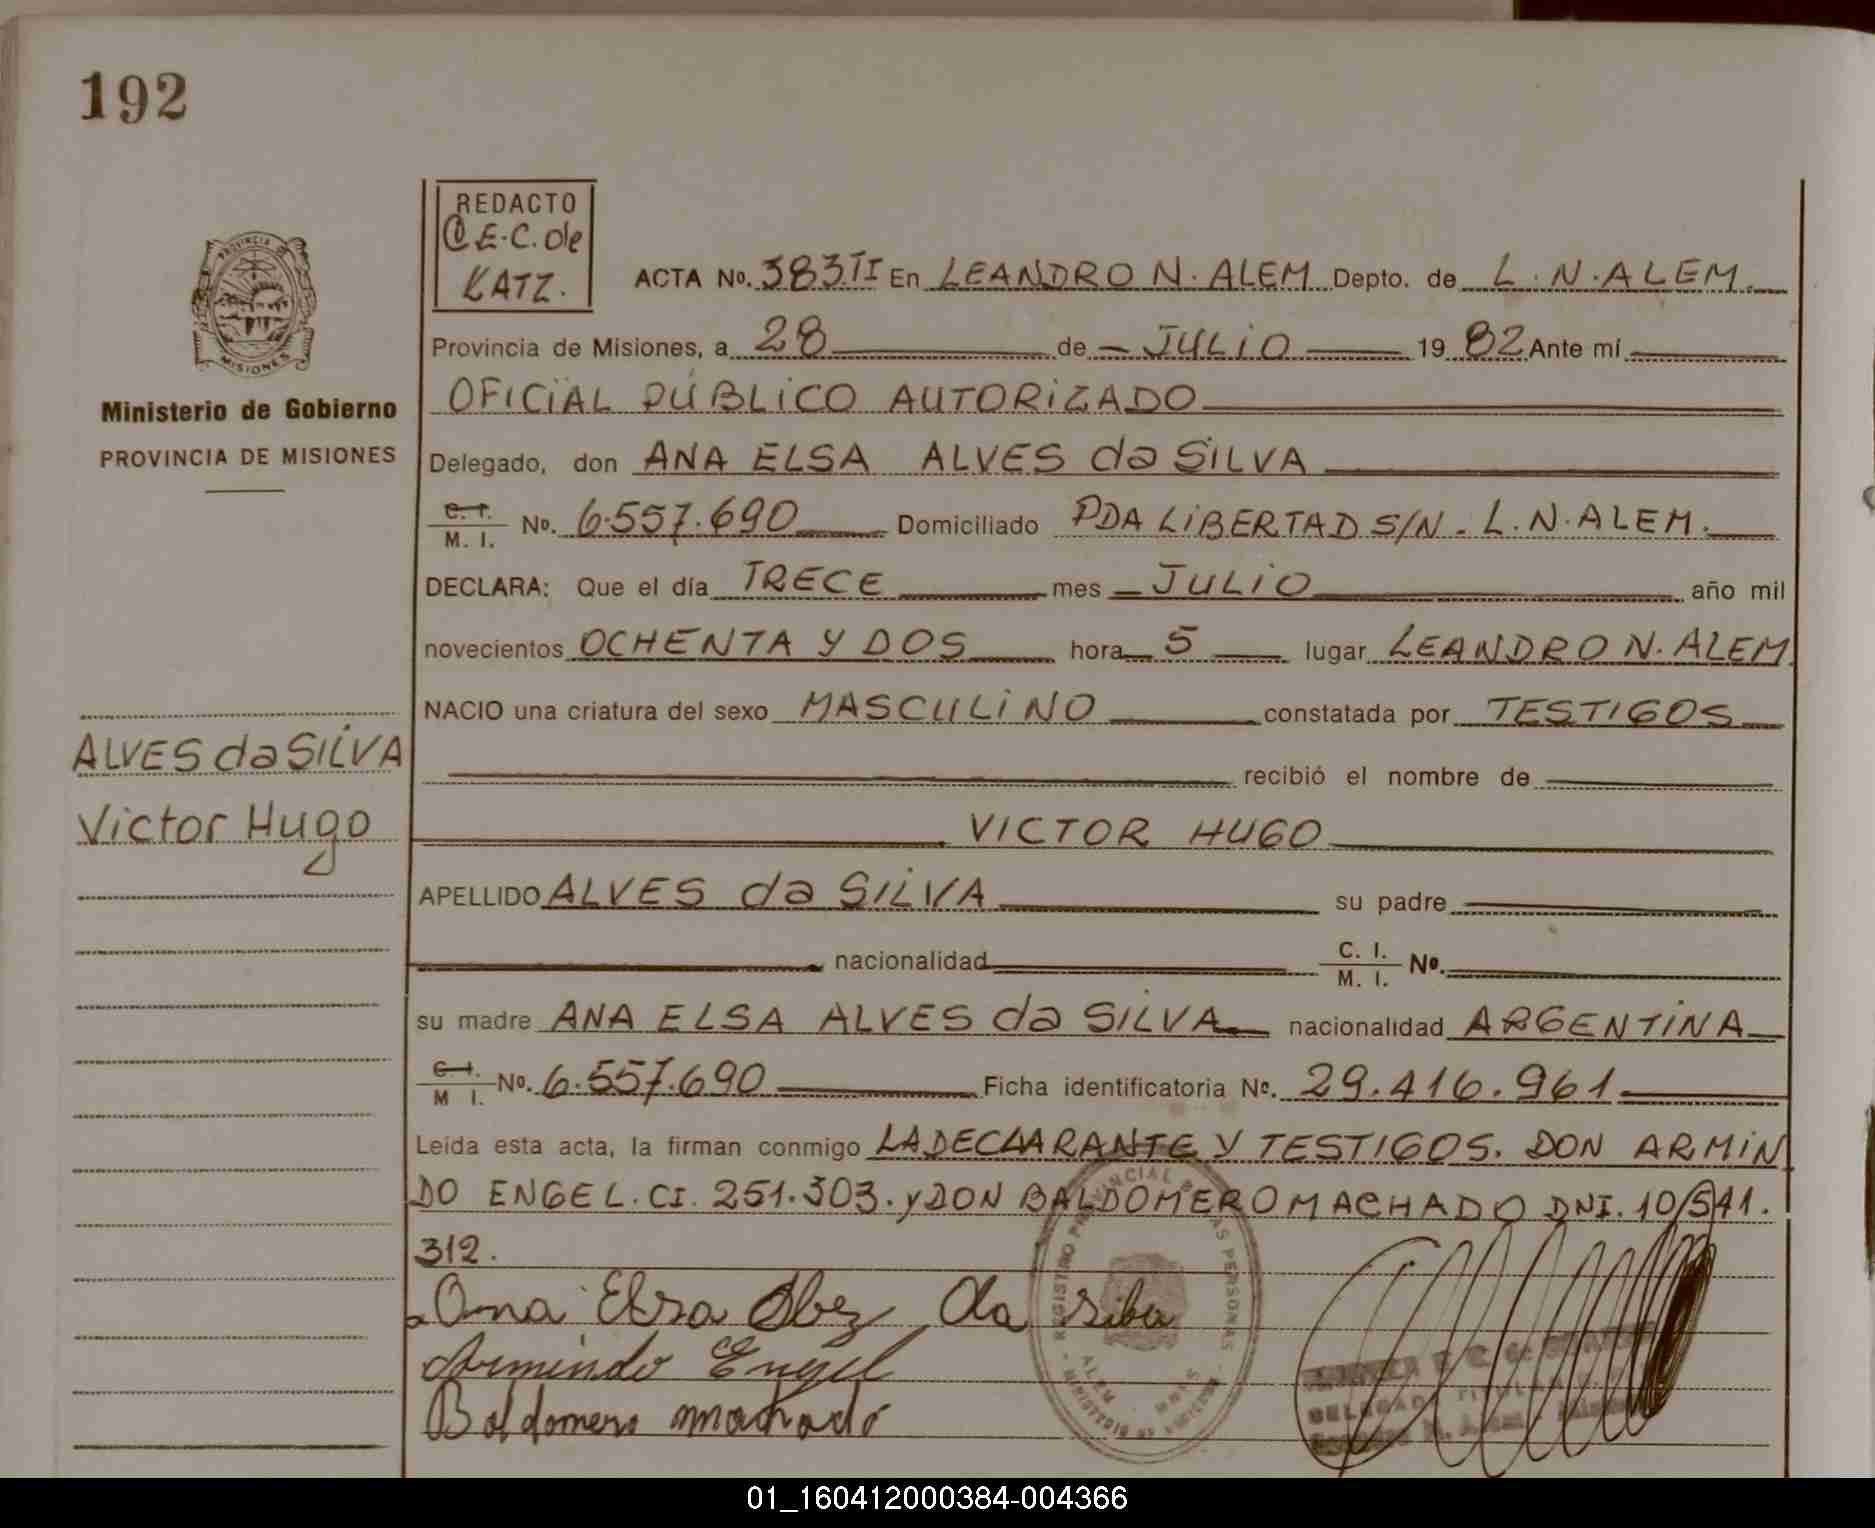 192
REDACTO
E.C. de
KATZ.
PROVINCIA DE
MISIONES
Ministerio de Gobierno
PROVINCIA DE MISIONES
ACTA No. 383 TI En LEANDRO N. ALEM Depto. de L. N. ALEM.
Provincia de Misiones, a 28 de JULIO 19 82 Ante mí
OFICIAL PÚBLICO AUTORIZADO
Delegado, don ANA ELSA ALVES da SILVA
C. I. M. I. No. 6.557.690 Domiciliado PDA LIBERTAD S/N - L. N. ALEM.
DECLARA: Que el día TRECE mes JULIO año mil
novecientos OCHENTA Y DOS hora 5 lugar LEANDRO N. ALEM
NACIO una criatura del sexo MASCULINO constatada por TESTIGOS
recibió el nombre de
ALVES da SILVA
Victor Hugo
VICTOR HUGO
APELLIDO ALVES da SILVA su padre
nacionalidad C. I. M. I. No.
su madre ANA ELSA ALVES da SILVA nacionalidad ARGENTINA
C. I. M I. No. 6.557.690 Ficha identificatoria No. 29.416.961
Leída esta acta, la firman conmigo LA DECLARANTE Y TESTIGOS. DON ARMIN
DO ENGEL. CI. 251.303. y DON BALDOMERO MACHADO DNI. 10.541.
312.
Ana Elsa Albez Da Silva
Armindo Engel
Baldomero Machado
REGISTRO PROVINCIAL DE LAS PERSONAS
ALEM
MNES
DELEGADA TITULAR
01_160412000384-004366